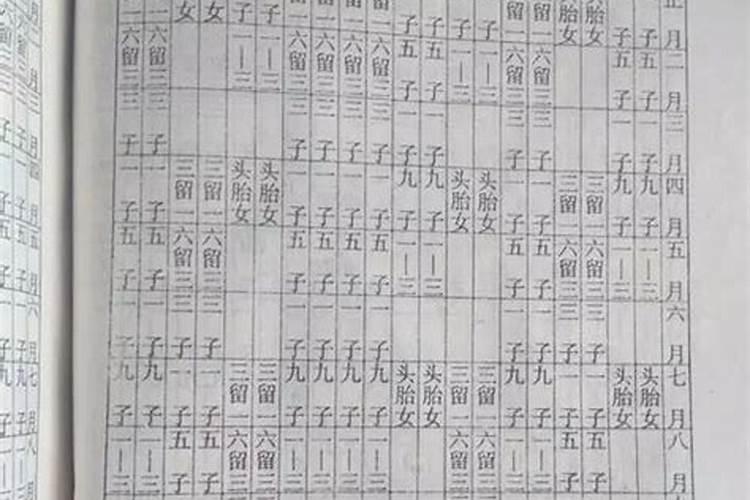 月二月三月四月五月六月七月八月
子五子一子九子一|三头胎女
子五子一子九子一|三头胎女
胎女三留一六留三三子一子五子
胎女三留一六留三三子一子五子
留一六留三三子一子五子一子九子一|三
留一六留三三子一子五子一子九子一|三
子一|三头胎女三留一六留三
子一|三头胎女三留一六留三
子五子一子九子一|三头胎女
子五子一子九子一|三头胎女
留一六留三三子一子五子一子九子一|三
留一六留三三子一子五子一子九子一|三
留一六留三三子一子五子一子九子一|三
留一六留三三子一子五子一子九子一|三
子一|三头胎女三留一六留三
子一|三头胎女三留一六留三
女三留一六留三三子一子五子
女三留一六留三三子一子五子
一六留三三子一子五子一子九子一|三
一六留三三子一子五子一子九子一|三